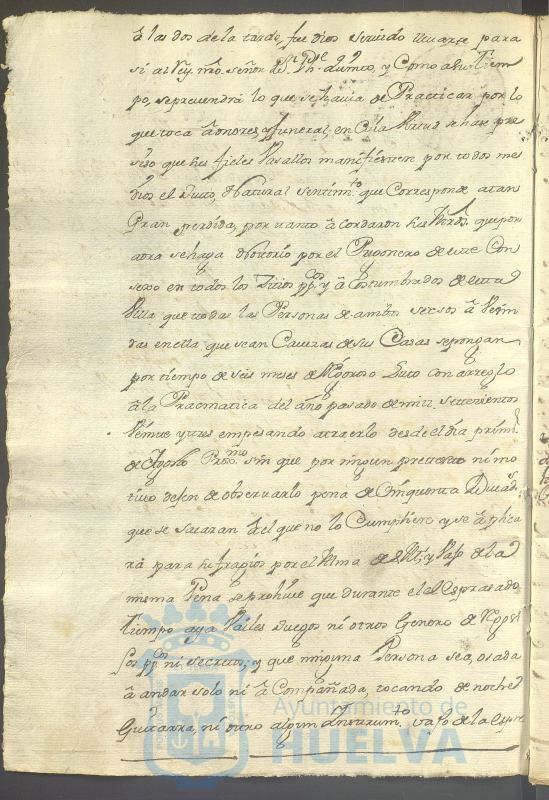 à las dos de la tarde, fue Dios servido llevarse para
sí al Rey nro. señor Dn. Ph. quinto, y Como a su tiem
po, se prevendrá lo que se havia de Practicar por lo
que toca à honores, y funeral, en Cuia Virtud se hase pre
siso que sus fieles Vasallos manifiesten por todos me
dios el Justo, y Natural sentimto. que Corresponde a tan
Gran perdida, por tanto à cordaron sus Mrds. que por
aora se haga Notorio por el Pregonero de este Con
sexo en todos los Sitios ppcos. y à Costumbrados de esta
Villa que todas las Personas de ambos secsos à Vesin
das en ella que sean Cavezas de sus Casas se pongan
por tiempo de seis meses de Rigoroso Luto con arreglo
à la Pracmatica del año pasado de mill setesientos
Veinte y tres empesando à traerlo desde el día primº
de Agosto Proxmo. sin que por ningun pretexto ni mo
tivo dejen de observarlo pena de Cinquenta Ducads.
que se sacaran à el que no lo Cumpliere, y se à plica
rá para sufragios por el Alma de S. M. y Vajo de la
misma Pena se prohive que durante el espresado
tiempo aya Vailes Juegos ni otros Genero de Rego
sijos ppcos. ni secretos; y que ninguna Persona sea osada
à andar solo ni à Compañada, tocando de noche
Guitarra, ni otro algun Instrumto. vajo de la espre
Ayuntamiento de
HUELVA